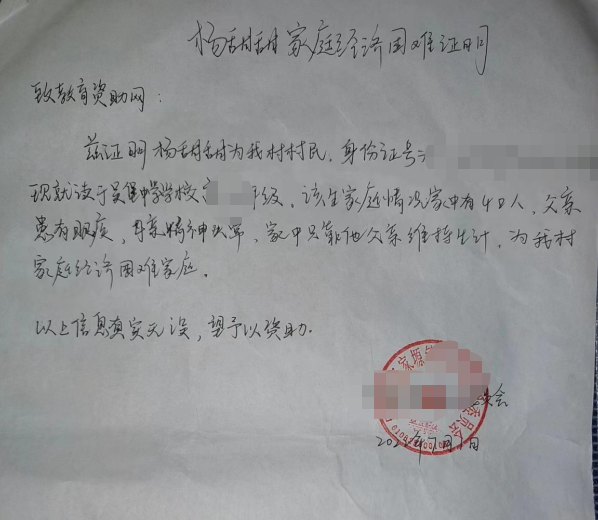 杨甜甜家庭经济困难证明
致教育资助网：
兹证明杨甜甜为我村村民，身份证号：
现就读于吴堡中学学校 年级，该生家庭情况家中有4口人，父亲
患有眼疾，母亲精神失常，家中只靠他父亲维持生计，为我村
家庭经济困难家庭。
以上信息真实无误，望予以资助.
会
年7月 日